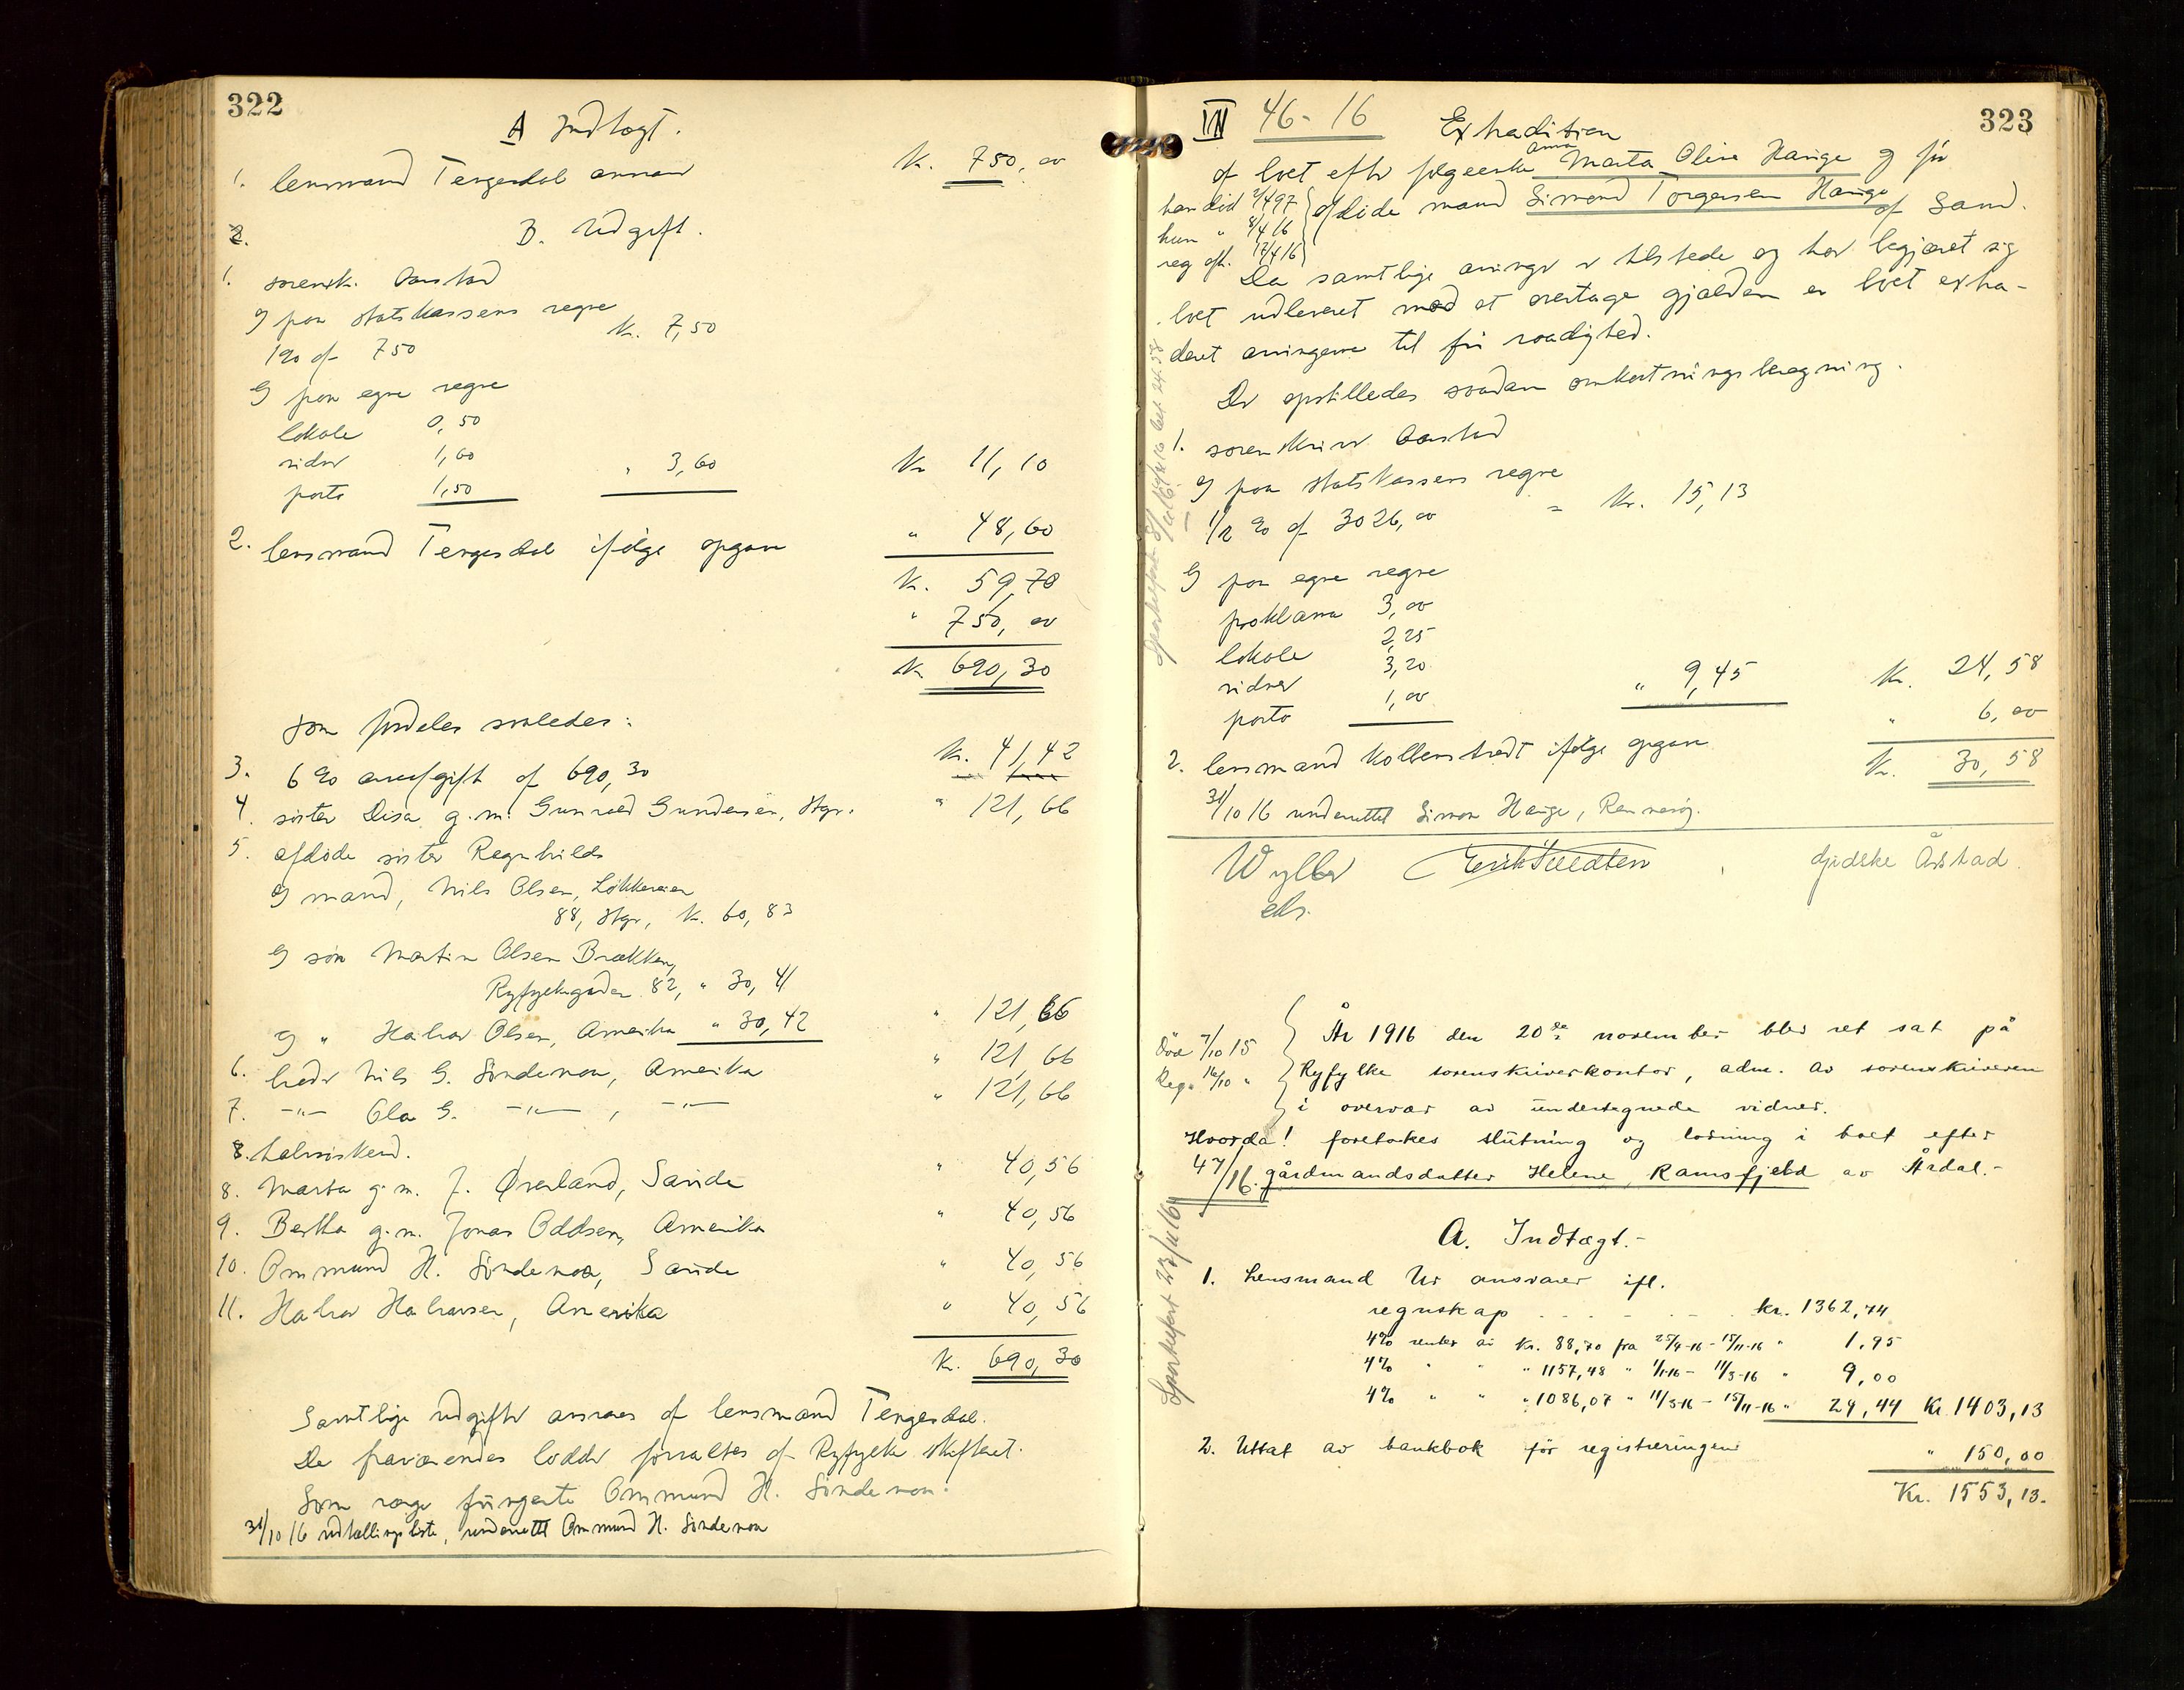 322
A Indtægt.
1. lensmand Tengesdal ansvar Kr. 750,00
2.
B. Udgift.
1. sorensk. Aarstad
a) paa statskassens regne
1% af 750 Kr. 7,50
b) paa egne regne
lokale 0,50
vidner 1,60
porto 1,50 " 3,60 Kr 11,10
2. lensmand Tengesdal ifølge opgave " 48,60
Kr. 59,70
" 750,00
Kr. 690,30
som fordeles saaledes:
3. 6% arveafgift af 690,30 Kr. 41,42
4. søster Disa g.m. Gunvald Gundersen, Stgr. " 121,66
5. afdøde søster Ragnhilds
a) mand, Nils Olsen, Løkkeveien
88, Stgr, Kr. 60,83
b) søn Martin Olsen Brækken,
Ryfylkegaden 82, " 30,41
c) " Halvor Olsen, Amerika " 30,42 " 121,66
6. broder Nils G. Søndenaa, Amerika " 121,66
7. -"- Ola G. -"- , -"- " 121,66
halvsøskend.
8. Marta g.m. J. Øverland, Sauda " 40,56
9. Bertha g.m. Jonas Oddsen, Amerika " 40,56
10. Ommund H. Søndenaa, Saude " 40,56
11. Halvor Halvorsen, Amerika " 40,56
Kr. 690,30
Samtlige udgifter ansvares af lensmand Tengesdal.
De fraværendes lodder forvaltes af Ryfylke skifteret.
Som værge fungerte Ommund H. Søndenaa.
31/10 16 udtællingsliste, underrettet Ommund H. Søndenaa
323
IV 46-16 Extradition
af boet efter følgeenke Anna Marta Oline Hauge og før
han død 2/4 97
hun " 8/4 16
reg. eft. 17/4 16
afdøde mand Simond Torgersen Hauge af Sand.
Da samtlige arvinger er tilstede og har begjæret sig
boet udleveret mod at overtage gjælden er boet extra-
deret arvingerne til fri raadighed.
Der opstilledes saadan omkostningsberegning.
1. sorenskriver Aarstad
a) paa statskassens regne
1/2 % af 3026,00 = Kr. 15,13
b) paa egne regne
proklama 3,00
lokale 2,25
vidner 3,20
porto 1,00 " 9,45 Kr. 24,58
2. lensmand Kolbenstvedt ifølge opgave " 6,00
Kr. 30,58
31/10 16 underrettet Simon Hauge, Rennesøy.
Wyller
eks.
Gjedske Årstad
Død 7/10 15
Reg. 16/10 "
År 1916 den 20de november blev ret sat på
Ryfylke sorenskriverkontor, adm. av sorenskriveren
i overvær av undertegnede vidner.
Hvorda! foretokes slutning og lodning i boet efter
47/16. gårdmandsdatter Helene Ramsfjeld av Årdal.-
Sportelført 23/11 16
A. Indtægt.-
1. Lensmand Ur ansvarer ifl.
regnskap kr. 1362,74
4% renter av Kr. 88,70 fra 25/4-16 - 15/11-16 " 1,95
4% " " " 1157,48 " 1/1-16 - 11/3-16 " 9,00
4% " " " 1086,07 " 11/3-16 - 15/11-16 " 29,44 Kr 1403,13
2. Uttat av bankbok før registreringen " 150,00
Kr. 1553,13.